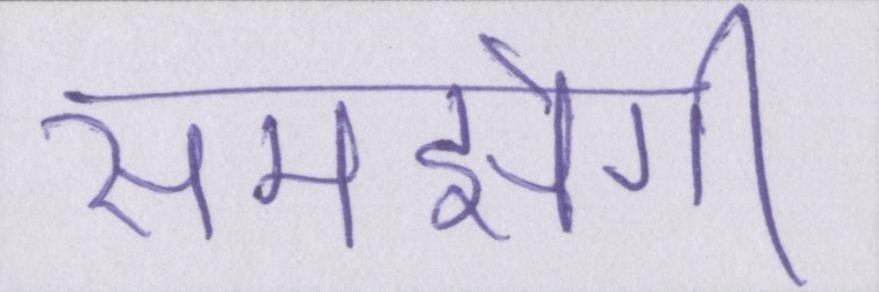 समझेगी